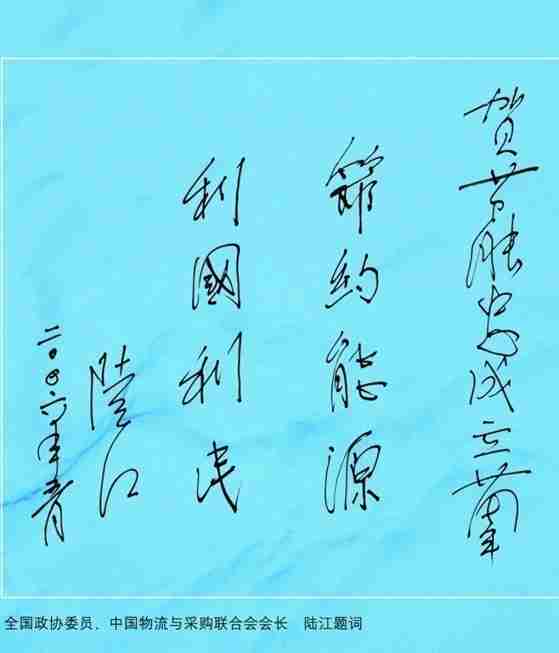 贺成立周年
節約能源
利國利民
陸江
二〇〇六年
全国政协委员、中国物流与采购联合会会长 陆江题词